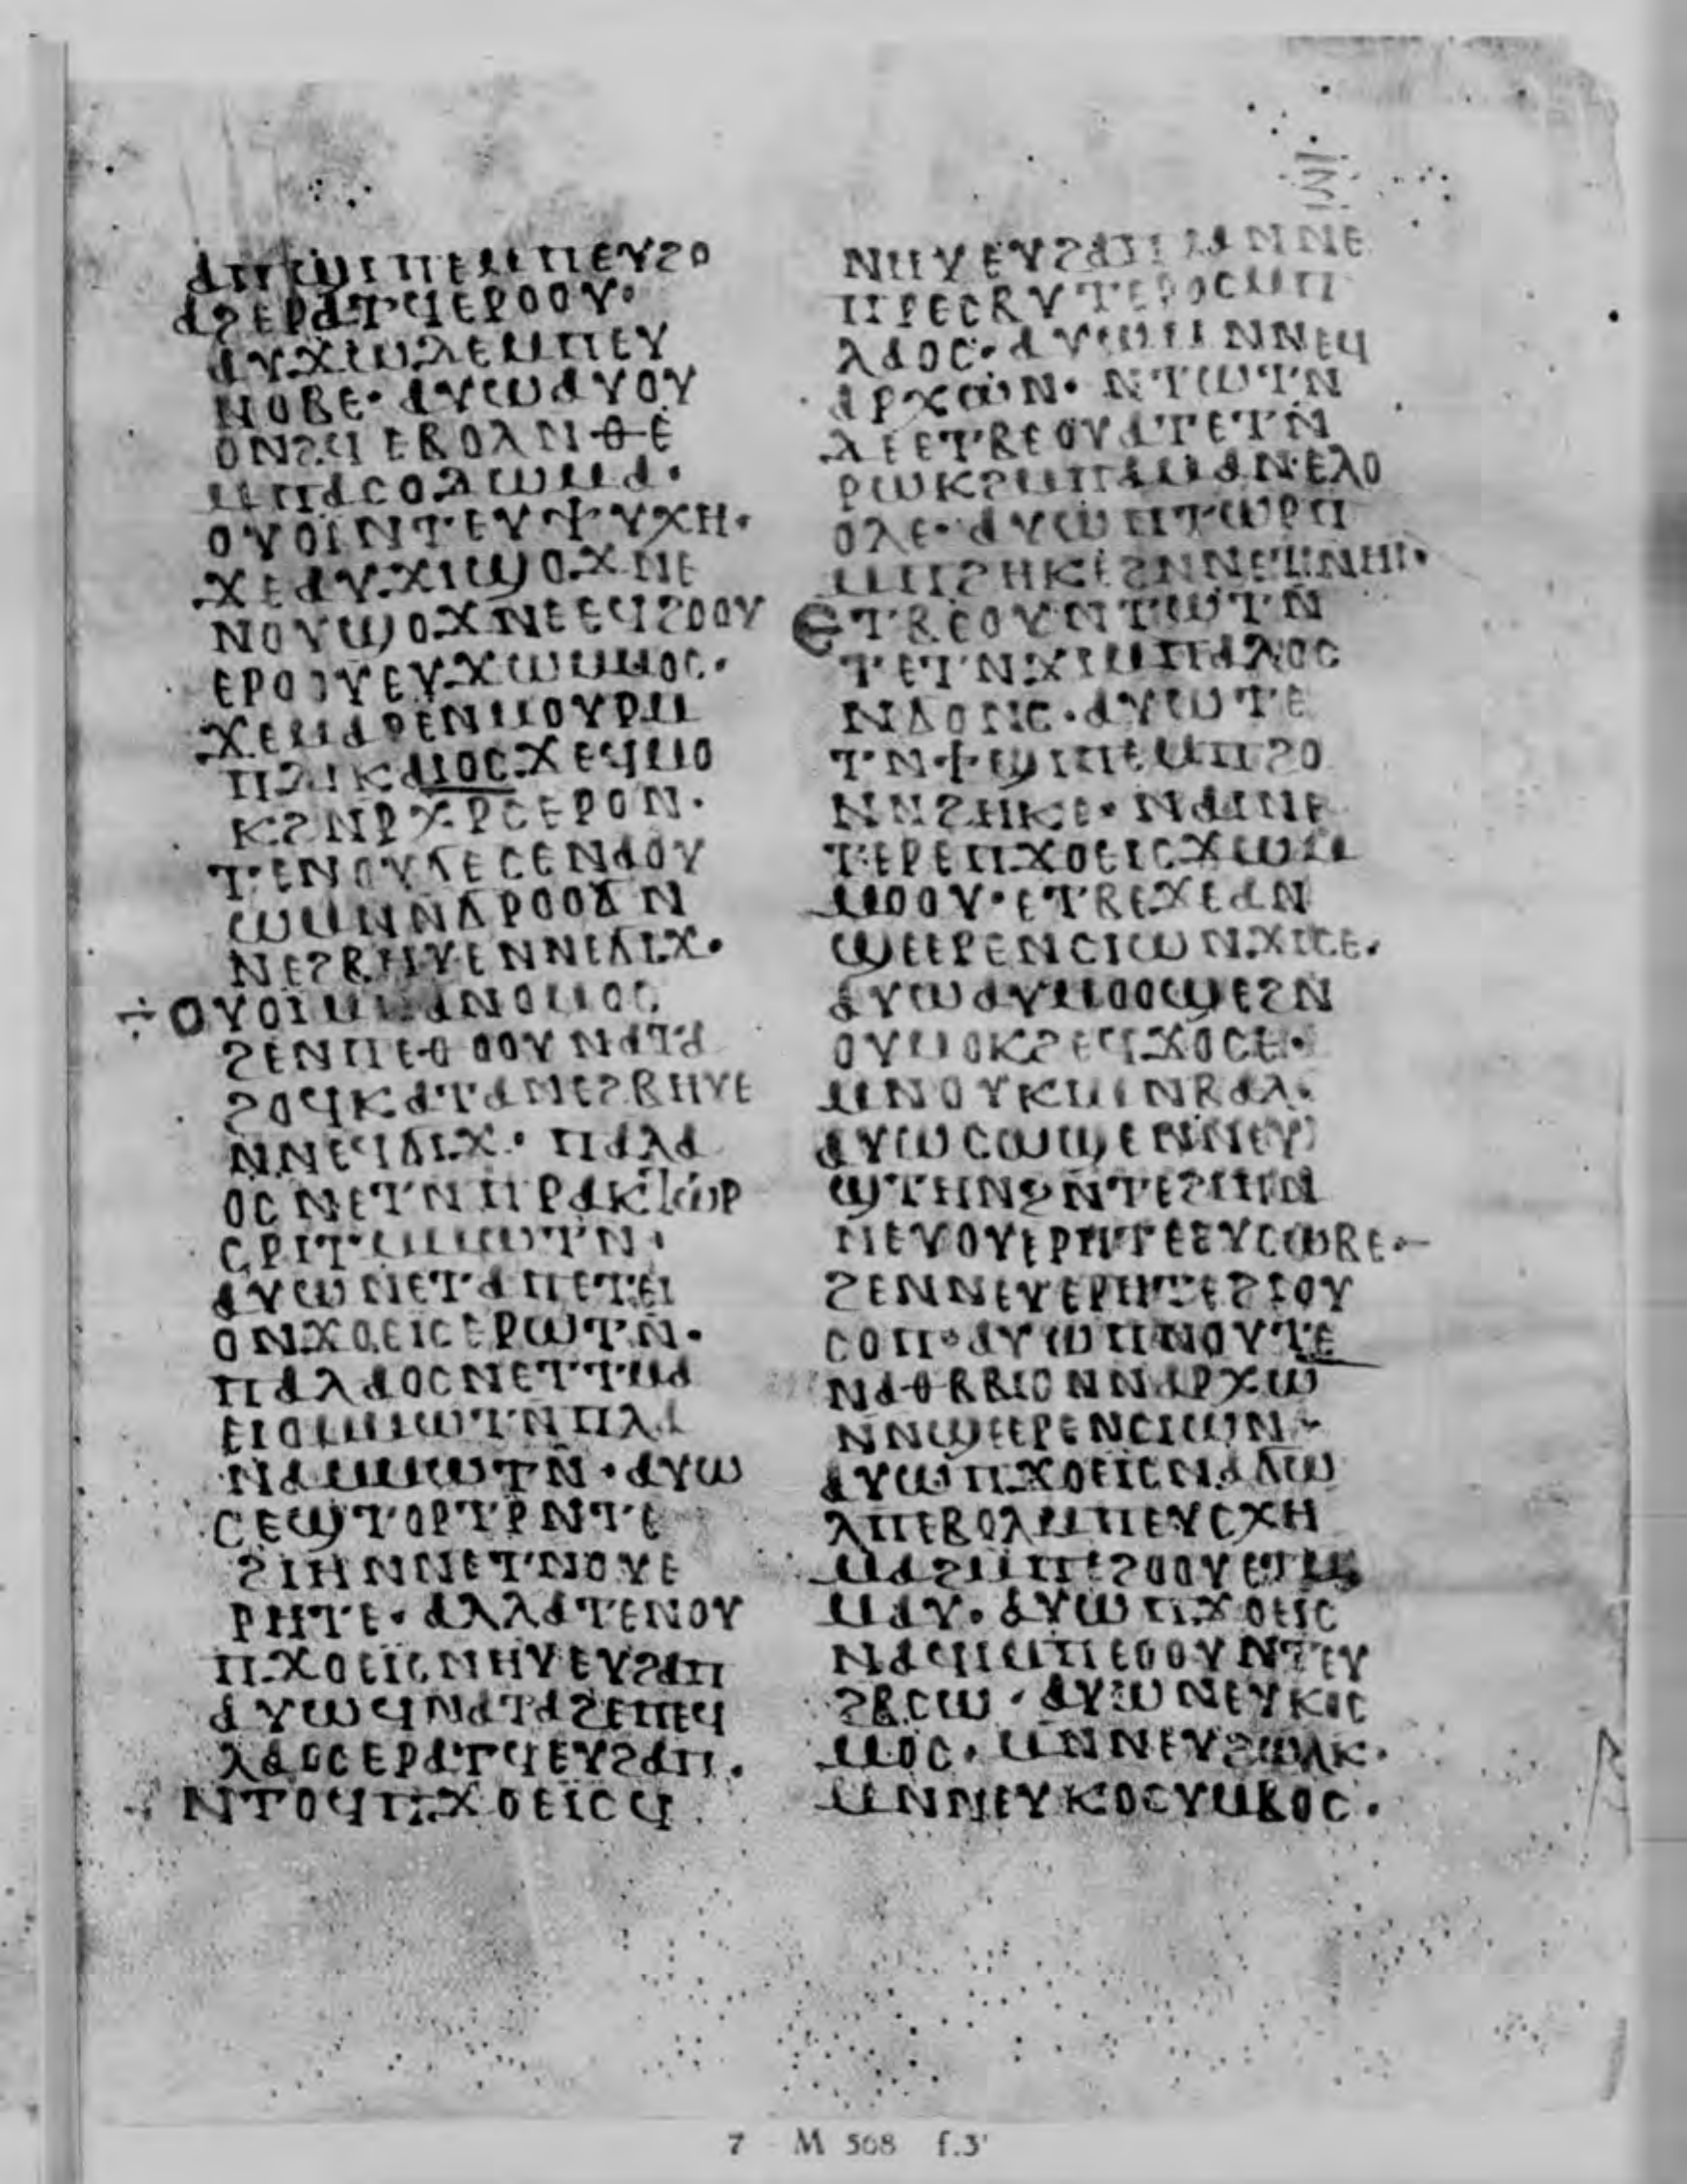 ⲁⲡϣⲓⲡⲉⲙⲡⲉⲩϩⲟ
ⲁϩⲉⲣⲁⲧϥⲉⲣⲟⲟⲩ·
ⲁⲩϫⲓⲱⲗⲉⲙⲡⲉⲩ
ⲛⲟⲃⲉ· ⲁⲩⲱⲁⲩⲟⲩ
ⲟⲛϩϥ ⲉⲃⲟⲗⲛⲑⲉ
ⲙⲡⲁⲥⲟⲇⲱⲙⲁ·
ⲟⲩⲟⲓⲛⲧⲉⲩⲯⲩⲭⲏ·
ϫⲉⲁⲩϫⲓϣⲟϫⲛⲉ
ⲛⲟⲩϣⲟϫⲛⲉⲉϥϩⲟⲟⲩ
ⲉⲣⲟⲟⲩⲉⲩϫⲱⲙⲙⲟⲥ·
ϫⲉⲙⲁⲣⲉⲛⲙⲟⲩⲣⲙ
ⲡⲇⲓⲕⲁⲓⲟⲥϫⲉϥⲙⲟ
ⲕϩⲛⲣⲭⲣⲥⲉⲣⲟⲛ·
ⲧⲉⲛⲟⲩϭⲉⲥⲉⲛⲁⲟⲩ
ⲱⲙⲛⲛⲁⲣⲟⲟⲩⲛ
ⲛⲉϩⲃⲏⲩⲉⲛⲛⲉⲩϭⲓϫ·
÷ ⲟⲩⲟⲓⲙⲡⲁⲛⲟⲙⲟⲥ
ϩⲉⲛⲡⲉⲑⲟⲟⲩⲛⲁⲧⲁ
ϩⲟϥⲕⲁⲧⲁⲛⲉϩⲃⲏⲩⲉ
ⲛⲛⲉϥϭⲓϫ· ⲡⲁⲗⲁ
ⲟⲥ ⲛⲉⲧⲛⲡⲣⲁⲕⲧⲱⲣ
ⲥⲣⲓⲧⲙⲙⲱⲧⲛ·
ⲁⲩⲱⲛⲉⲧⲁⲡⲉⲧⲉⲓ
ⲟⲛϫⲟⲉⲓⲥⲉⲣⲱⲧⲛ·
ⲡⲁⲗⲁⲟⲥⲛⲉⲧⲧⲙⲁ
ⲉⲓⲟⲙⲙⲱⲧⲛⲡⲗⲁ
ⲛⲁⲙⲙⲱⲧⲛ· ⲁⲩⲱ
ⲥⲉϣⲧⲟⲣⲧⲣⲛⲧⲉ
ϩⲓⲏⲛⲛⲉⲧⲛⲟⲩⲉ
ⲣⲏⲧⲉ· ⲁⲗⲗⲁⲧⲉⲛⲟⲩ
ⲡϫⲟⲉⲓⲥⲛⲏⲩⲉⲩϩⲁⲡ
ⲁⲩⲱϥⲛⲁⲧⲁϩⲉⲡⲉϥ
ⲗⲁⲟⲥⲉⲣⲁⲧϥⲉⲩϩⲁⲡ·
ⲛⲧⲟϥⲡϫⲟⲉⲓⲥϥ
ⲛⲏⲩⲉⲩϩⲁⲡ ⲙⲛⲛⲉ
ⲡⲣⲉⲥⲃⲩⲧⲉⲣⲟⲥⲙⲡ
ⲗⲁⲟⲥ· ⲁⲩⲱⲙⲛⲛⲉϥ
ⲁⲣⲭⲱⲛ· ⲛⲧⲱⲧⲛ
ⲇⲉⲉⲧⲃⲉⲟⲩⲁⲧⲉⲧⲛ
ⲣⲱⲕϩⲙⲡⲁⲙⲁⲛⲉⲗⲟ
ⲟⲗⲉ· ⲁⲩⲱⲡⲧⲱⲣⲡ
ⲙⲡϩⲏⲕⲉϩⲛⲛⲉⲧⲛⲏⲓ·
ⲉⲧⲃⲉⲟⲩⲛⲧⲱⲧⲛ
ⲧⲉⲧⲛϫⲓⲙⲡⲁⲗⲟⲥ
ⲛϭⲟⲛⲥ· ⲁⲩⲱⲧⲉ
ⲧⲛϯϣⲓⲡⲉⲙⲡϩⲟ
ⲛⲛϩⲏⲕⲉ· ⲛⲁⲓⲛⲉ
ⲧⲉⲣⲉⲡϫⲟⲉⲓⲥϫⲱⲙ
ⲙⲟⲟⲩ· ⲉⲧⲃⲉϫⲉⲁⲛ
ϣⲉⲉⲣⲉⲛⲥⲓⲱⲛϫⲓⲥⲉ·
ⲁⲩⲱⲁⲩⲙⲟⲟϣⲉϩⲛ
ⲟⲩⲙⲟⲕϩⲉϥϫⲟⲥⲉ·
ⲙⲛⲟⲩⲕⲓⲙⲛⲃⲁⲗ·
ⲁⲩⲱⲥⲱϣⲉⲛⲛⲉⲩ
ϣⲧⲏⲛϩⲛⲧⲉϩⲓⲏⲛ
ⲛⲉⲩⲟⲩⲉⲣⲏⲧⲉⲉⲩⲥⲱⲃⲉ·
ϩⲉⲛⲛⲉⲩⲉⲣⲏⲧⲉϩⲓⲟⲩ
ⲥⲟⲡ· ⲁⲩⲱⲡⲛⲟⲩⲧⲉ
ⲛⲁⲑⲃⲃⲓⲟⲛⲛⲁⲣⲭⲱ
ⲛⲛϣⲉⲉⲣⲉⲛⲥⲓⲱⲛ·
ⲁⲩⲱⲡϫⲟⲉⲓⲥⲛⲁϭⲱ
ⲗⲡⲉⲃⲟⲗⲙⲡⲉⲩⲥⲭⲏ
ⲙⲁϩⲙⲡⲉϩⲟⲟⲩⲉⲧⲙ
ⲙⲁⲩ· ⲁⲩⲱⲡϫⲟⲉⲓⲥ
ⲛⲁϥⲓⲙⲡⲉⲟⲟⲩⲛⲧⲉⲩ
ϩⲃⲥⲱ· ⲁⲩⲱⲛⲉⲩⲕⲓⲥ
ⲙⲟⲥ· ⲙⲛⲛⲉⲩϩⲱⲗⲕ·
ⲙⲛⲛⲉⲩⲕⲟⲥⲩⲙⲃⲟⲥ·
7 M 568 f.3ʳ